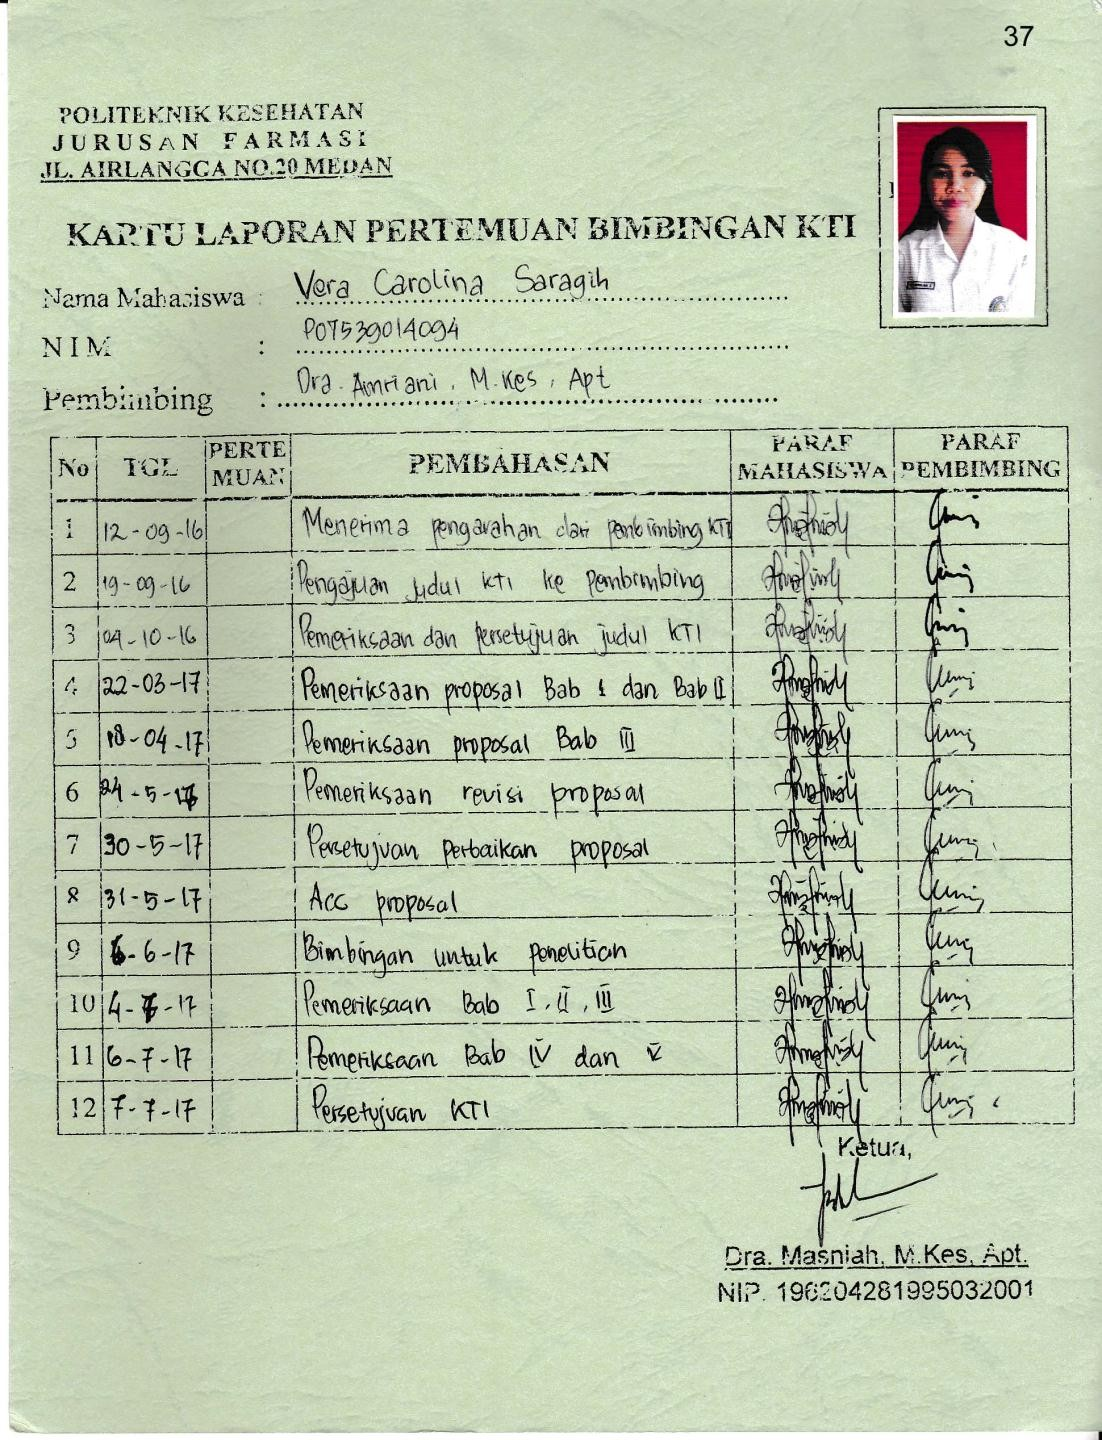 37
POLITEKNIK KESEHATAN
JURUSAN FARMASI
JL. AIRLANGGA NO.20 MEDAN
KARTU LAPORAN PERTEMUAN BIMBINGAN KTI
Nama Mahasiswa : Vera Carolina Saragih
NIM : P07539014094
Pembimbing : Dra. Amriani, M.Kes, Apt
No TGL PERTE MUAN PEMBAHASAN PARAF MAHASISWA PARAF PEMBIMBING
1 12-09-16 Menerima pengarahan dari pembimbing KTI
2 19-09-16 Pengajuan judul KTI ke pembimbing
3 04-10-16 Pemeriksaan dan persetujuan judul KTI
4 22-03-17 Pemeriksaan proposal Bab I dan Bab II
5 18-04-17 Pemeriksaan proposal Bab III
6 24-5-17 Pemeriksaan revisi proposal
7 30-5-17 Persetujuan perbaikan proposal
8 31-5-17 Acc proposal
9 6-6-17 Bimbingan untuk penelitian
10 4-7-17 Pemeriksaan Bab I, II, III
11 6-7-17 Pemeriksaan Bab IV dan V
12 7-7-17 Persetujuan KTI
Ketua,
Dra. Masniah, M.Kes, Apt.
NIP. 196204281995032001